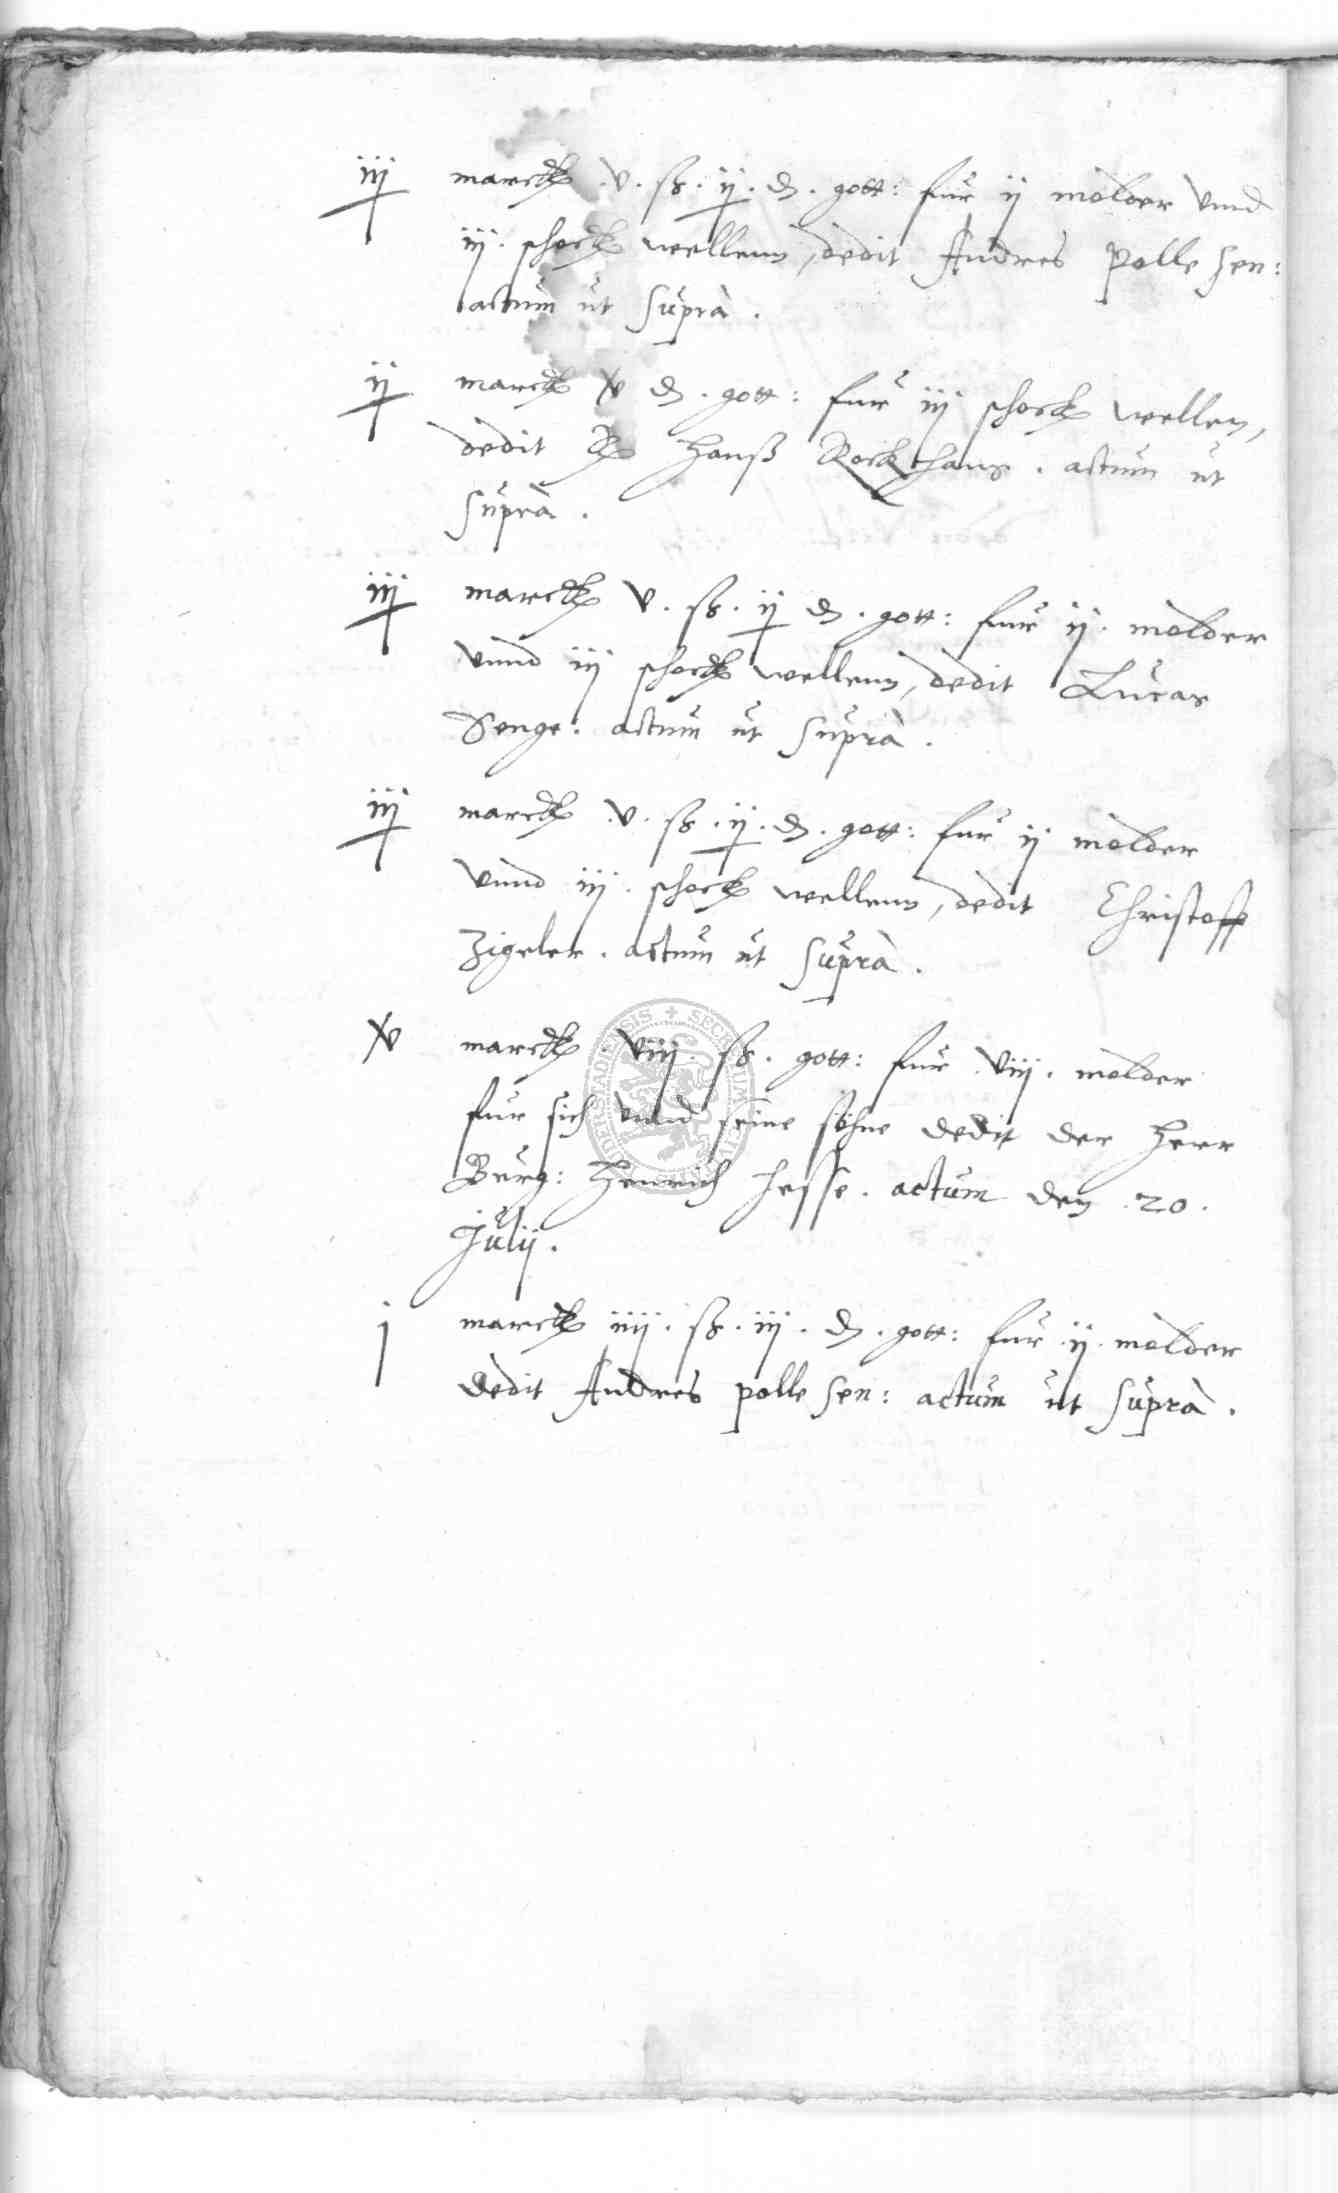 iij marck .v. ß. ij. d. gott: fur ij molder vnnd
iij. schock wellenn, dedit Andres Polle sen:
actum ut supra.
ij marck v d. gott: fur iij schock wellen,
dedit H Hanß Rockhaus. actum ut
supra.
iij marck v. ß. ij d. gott: fur ij. molder
vnnd iij schock wellenn, dedit Lucas
Senge. actum ut supra.
iij marck .v. ß. ij. d. gott: fur ij molder
vnnd iij. schock wellenn, dedit Christoff
Zigeler. actum ut supra.
v marck. viij. ß. gott: fur viij. molder
fur sich vnnd seine söhne dedit der Herr
Burg: Henrich Hesse. actum den .20.
Julij.
j marck iiij. ß. iij. d. gott: fur ij. molder
dedit Andres polle sen: actum ut supra.
SECRETUM CIVITATIS DUDERSTADIENSIS